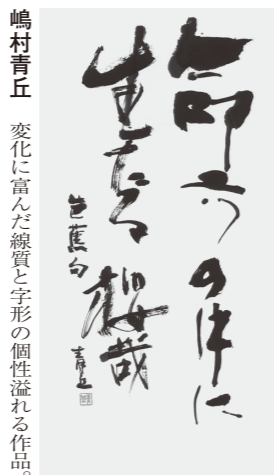 命二つの中に
生たる櫻哉
芭蕉句
青丘
嶋村青丘　変化に富んだ線質と字形の個性溢れる作品。